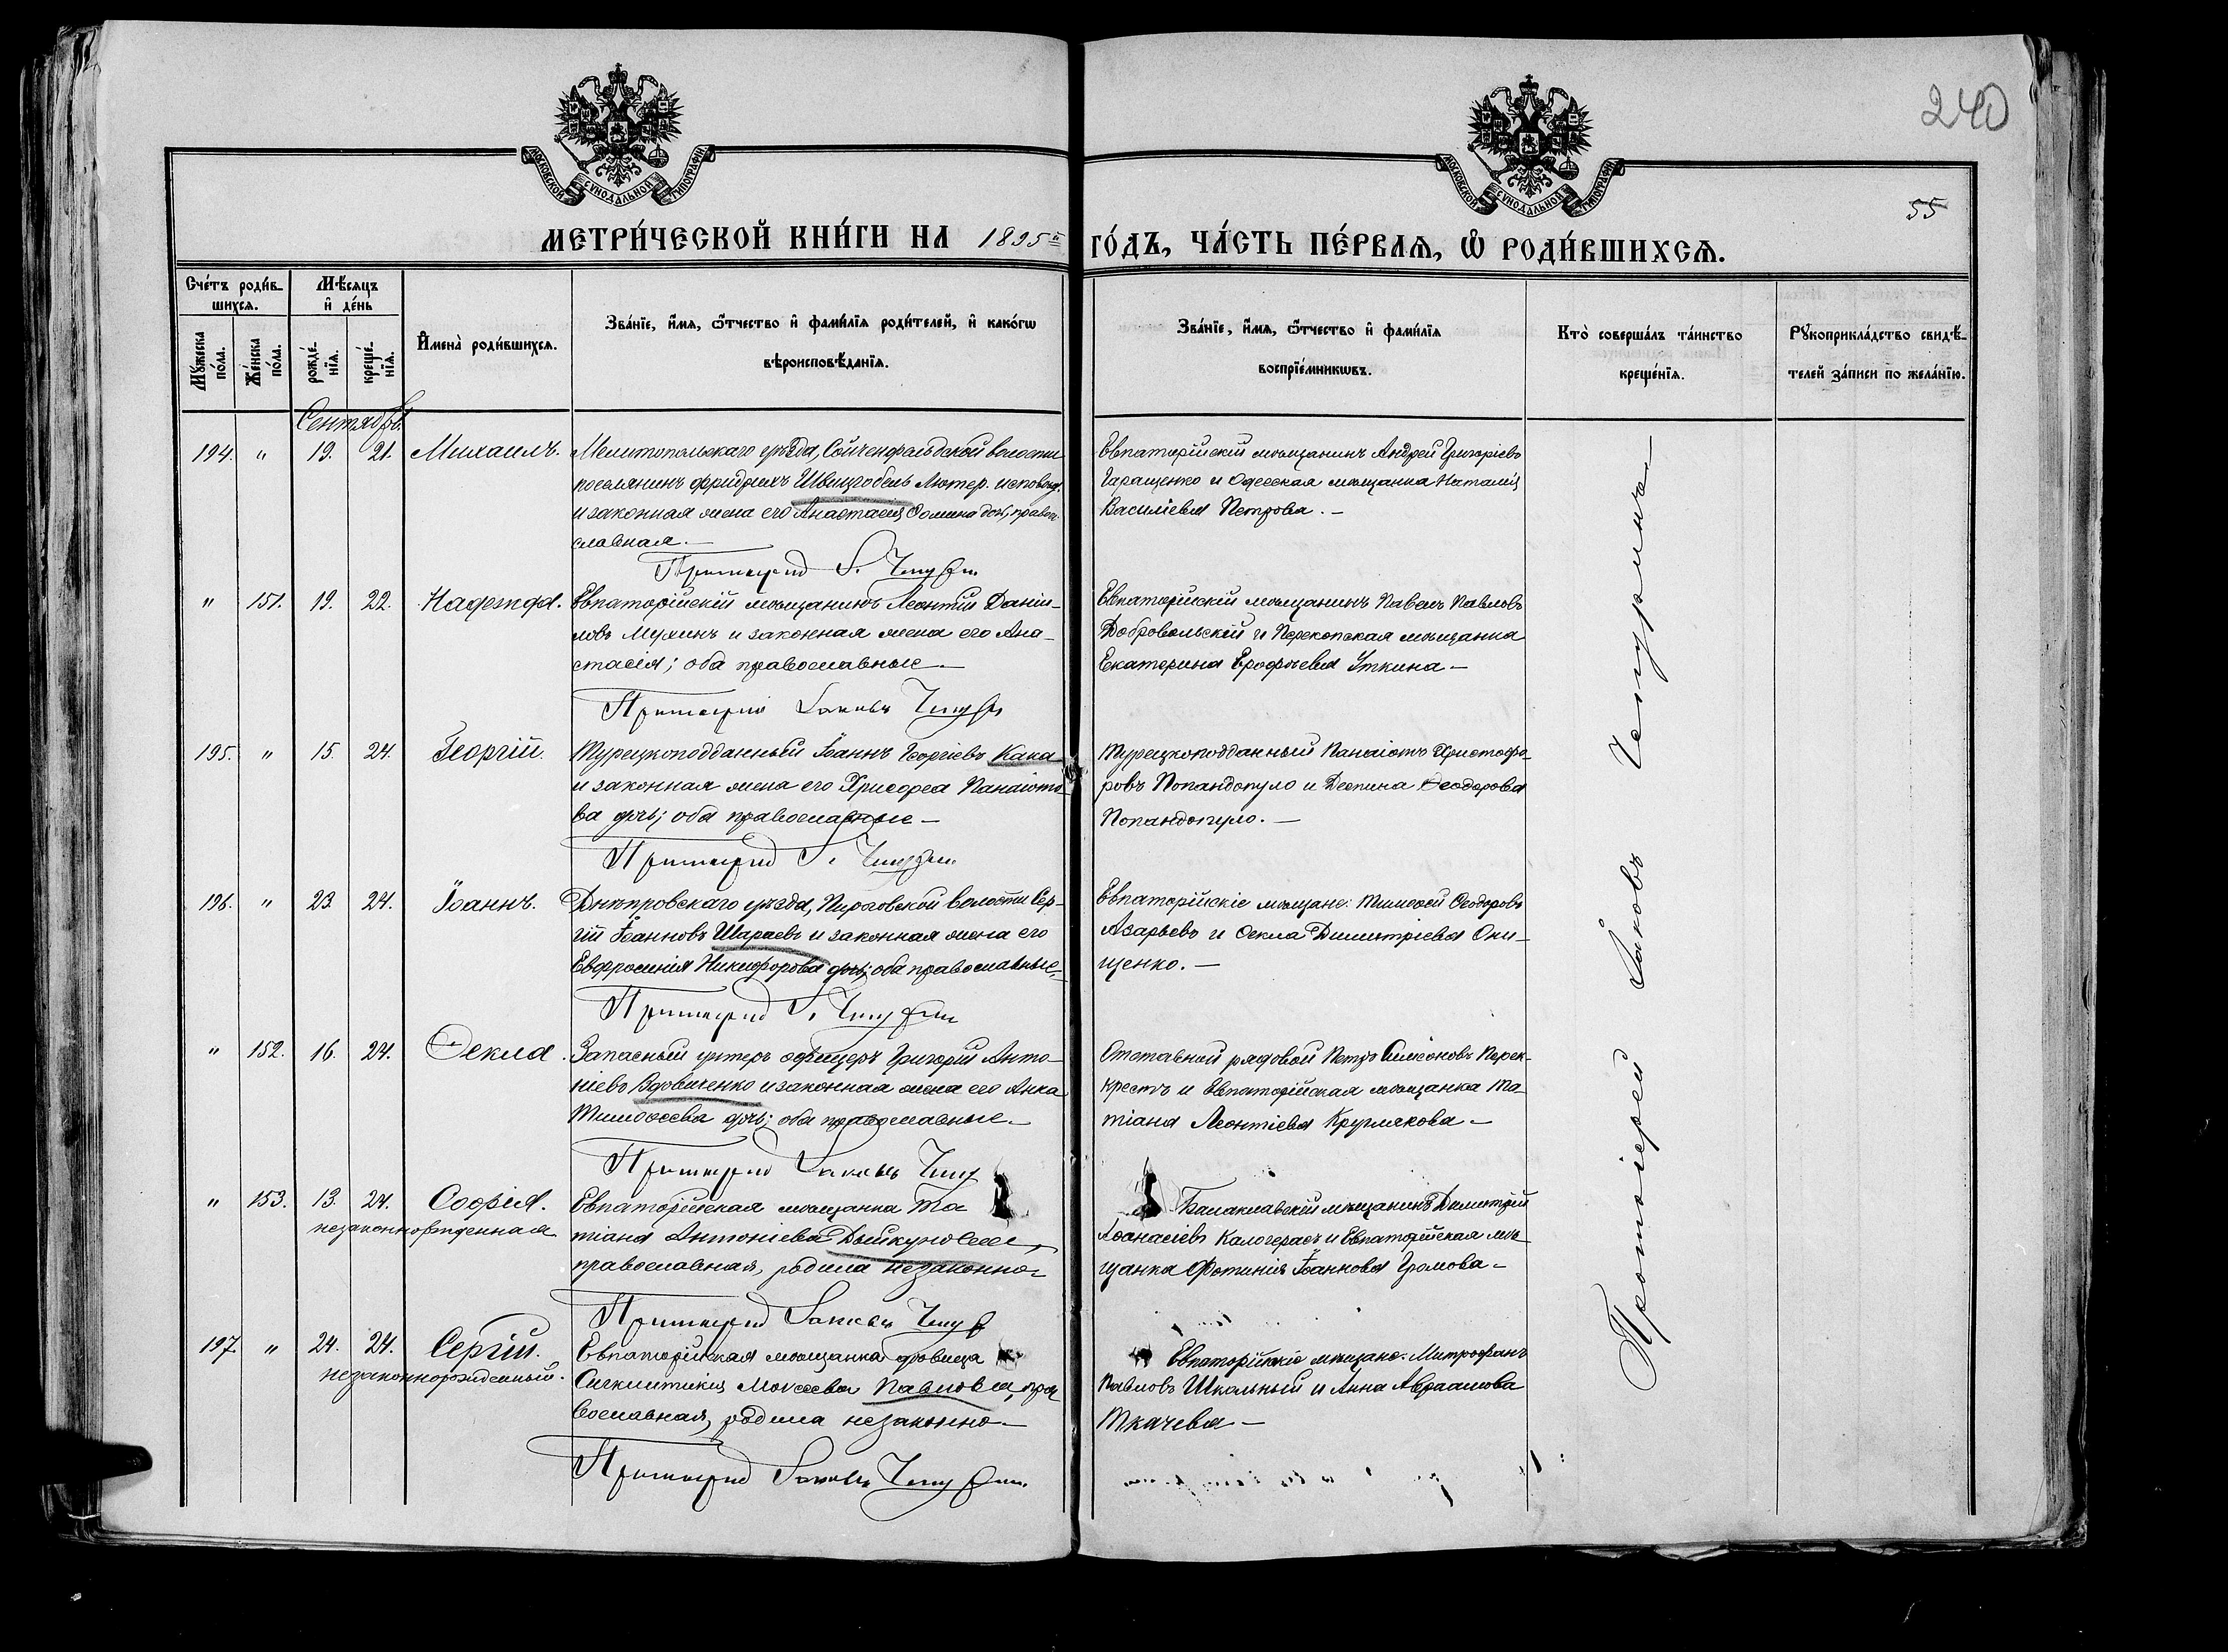 240
МОСКОВСКОЙ СѴНОДАЛЬНОЙ ТИПОГРАФІИ
МОСКОВСКОЙ СѴНОДАЛЬНОЙ ТИПОГРАФІИ
55
МЕТРИ́ЧЕСКОЙ КНИ́ГИ НА 1895й ГО́ДЪ, ЧА́СТЬ ПЕ́РВАЯ, Ѽ РОДИ́ВШИХСѦ.
Сче́тъ роди́в-
шихсѧ.
Мѣ́сяцъ
и҆ де́нь
Мꙋ́жеска
по́ла.
Же́нска
по́ла.
рожде́-
нїѧ.
креще́-
нїѧ.
И҆мена̀ роди́вшихсѧ.
Зва́нїе, и҆́мѧ, ѻ҆́тчество и҆ фами́лїѧ роди́телей, и҆ како́гѡ
вѣроисповѣ́данїѧ.
Зва́нїе, и҆́мѧ, ѻ҆́тчество и҆ фами́лїѧ
воспрїе́мникѡвъ.
Кто̀ соверша́лъ та́инство
креще́нїѧ.
Рꙋкоприкла́дство свидѣ́-
телей за́писи по жела́нїю.
Сентябрь
194. " 19. 21. Михаилъ.
Мелитопольскаго уѣзда, волости
поселянинъ Фридрихъ Швицгобель Лютер. исповѣд.
и законная жена его Анастасія Ѳомина дочь, право-
славная.
Протоіерей
Евпаторійскій мѣщанинъ Андрей Григорьевъ
Гаращенко и Одесская мѣщанка Наталія
Василіева Петрова. —
" 151. 19. 22. Надежда.
Евпаторійскій мѣщанинъ Леонтій Даніи-
ловъ Мухинъ и законная жена его Ана-
стасія; оба православные.
Протоіерей Іаковъ
Евпаторійскій мѣщанинъ Павелъ Павловъ
Добровольскій и Перекопская мѣщанка
Екатерина Ерофѣева Уткина —
195. " 15. 24. Георгій.
Турецкоподданный Іоаннъ Георгіевъ Кака
и законная жена его Хрисорса Панаіото-
ва дочь; оба православные —
Протоіерей
Турецкоподданный Панаіотъ Христофо-
ровъ Попандопуло и Деспина Ѳеодорова
Попандопуло. —
196. " 23. 24. Іоаннъ.
Днѣпровскаго уѣзда, волости Сер-
гій Іоанновъ Шараевъ и законная жена его
Евфросинія Никифорова дочь; оба православные. —
Протоіерей
Евпаторійскіе мѣщане: Тимоѳей Ѳеодоровъ
Азарьевъ и Ѳекла Димитріева Они-
щенко. —
" 152. 16. 24. Ѳекла.
Запасный унтеръ офицеръ Григорій Анто-
ніевъ Вдовиченко и законная жена его Анна
Тимоѳеева дочь; оба православные —
Протоіерей Іаковъ
Отставной рядовой Петръ Симеоновъ Перек-
рестъ и Евпаторійская мѣщанка Та-
тіана Леонтіева Круглякова —
" 153. 13. 24. Софія.
незаконнорожденная
Евпаторійская мѣщанка Та
тіана Антоніева
православная, родила незаконно —
Протоіерей Іаковъ
Балаклавскій мѣщанинъ Димитрій
Аѳанасіевъ Калогерасъ и Евпаторійская мѣ-
щанка Фотинія Іоаннова Громова —
197. " 24. 24. Сергій.
незаконнорожденный.
Евпаторійская мѣщанка вдовица
Синклитикія Моисеева Павлова, пра
вославная, родила незаконно —
Протоіерей Іаковъ
Евпаторійскіе мѣщане: Митрофанъ
Павловъ Школьный и Анна Авраамова
Ткачева —
Протоіерей Іаковъ Чепуринъ